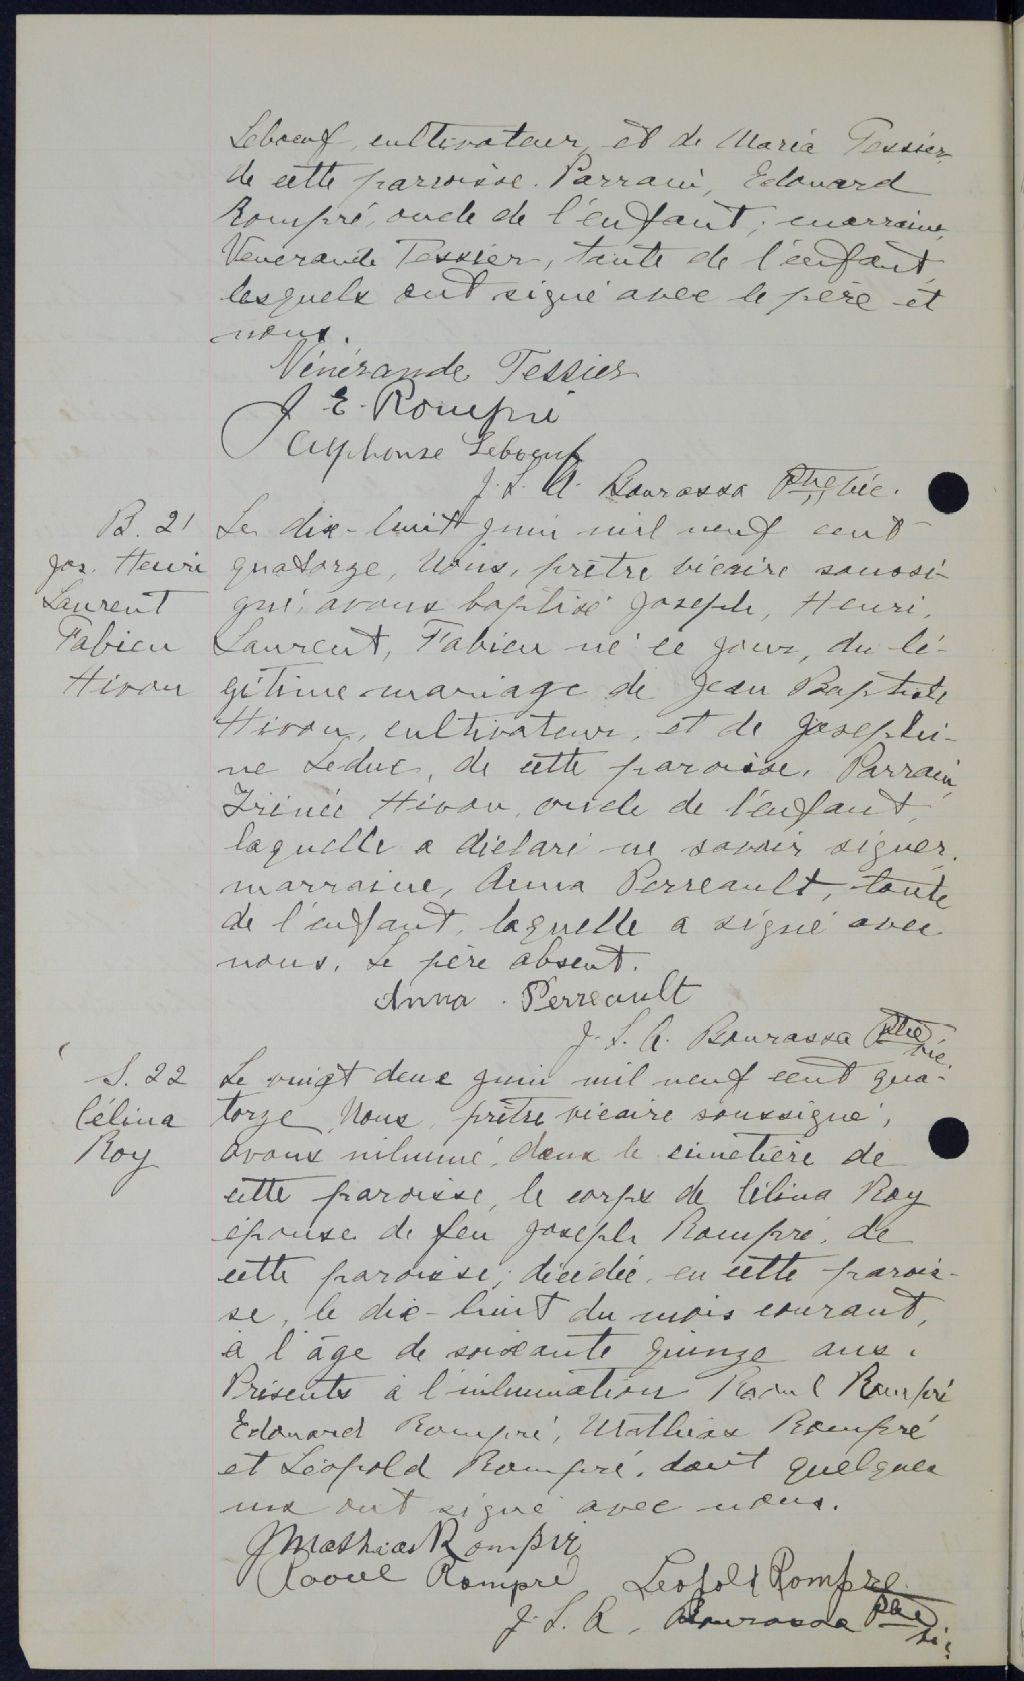 Leboeuf, cultivateur, et de Maria Tessier,
de cette parroisse. Parrain, Edouard
Rompré, oncle de l'enfant; marraine,
Vénérande Tessier, tante de l'enfant,
lesquels ont signé avec le père et
nous.
Vénérande Tessier
J. E. Rompré
Alphonse Leboeuf
J. L. A. Bourassa Ptre vic.
B. 21
Jos. Henri
Laurent
Fabien
Hivon
Le dix-huit juin mil neuf cent
quatorze, Nous, prêtre vicaire soussi-
gné, avons baptisé Joseph, Henri,
Laurent, Fabien né ce jour, du lé-
gitime mariage de Jean Baptiste
Hivon, cultivateur, et de Josephi-
ne Leduc, de cette paroisse. Parrain,
Irénée Hivon, oncle de l'enfant,
laquelle a déclaré ne savoir signer,
marraine, Anna Perreault, tante
de l'enfant, laquelle a signé avec
nous. Le père absent.
Anna Perreault
J. L. A. Bourassa Ptre
vic.
S. 22
Célina
Roy
Le vingt deux juin mil neuf cent qua-
torze, Nous, prêtre vicaire soussigné,
avons inhumé, dans le cimetière de
cette paroisse, le corps de Célina Roy
épouse de feu Joseph Rompré, de
cette paroisse; décédée, en cette parois-
se, le dix-huit du mois courant,
à l'âge de soixante quinze ans.
Présents à l'inhumation Raoul Rompré
Edouard Rompré, Mathias Rompré
et Léopold Rompré, dont quelques
uns ont signé avec nous.
J Mathias Rompré
Raoul Rompré Leopold Rompre
J. L. A. Bourassa Ptre
vic.